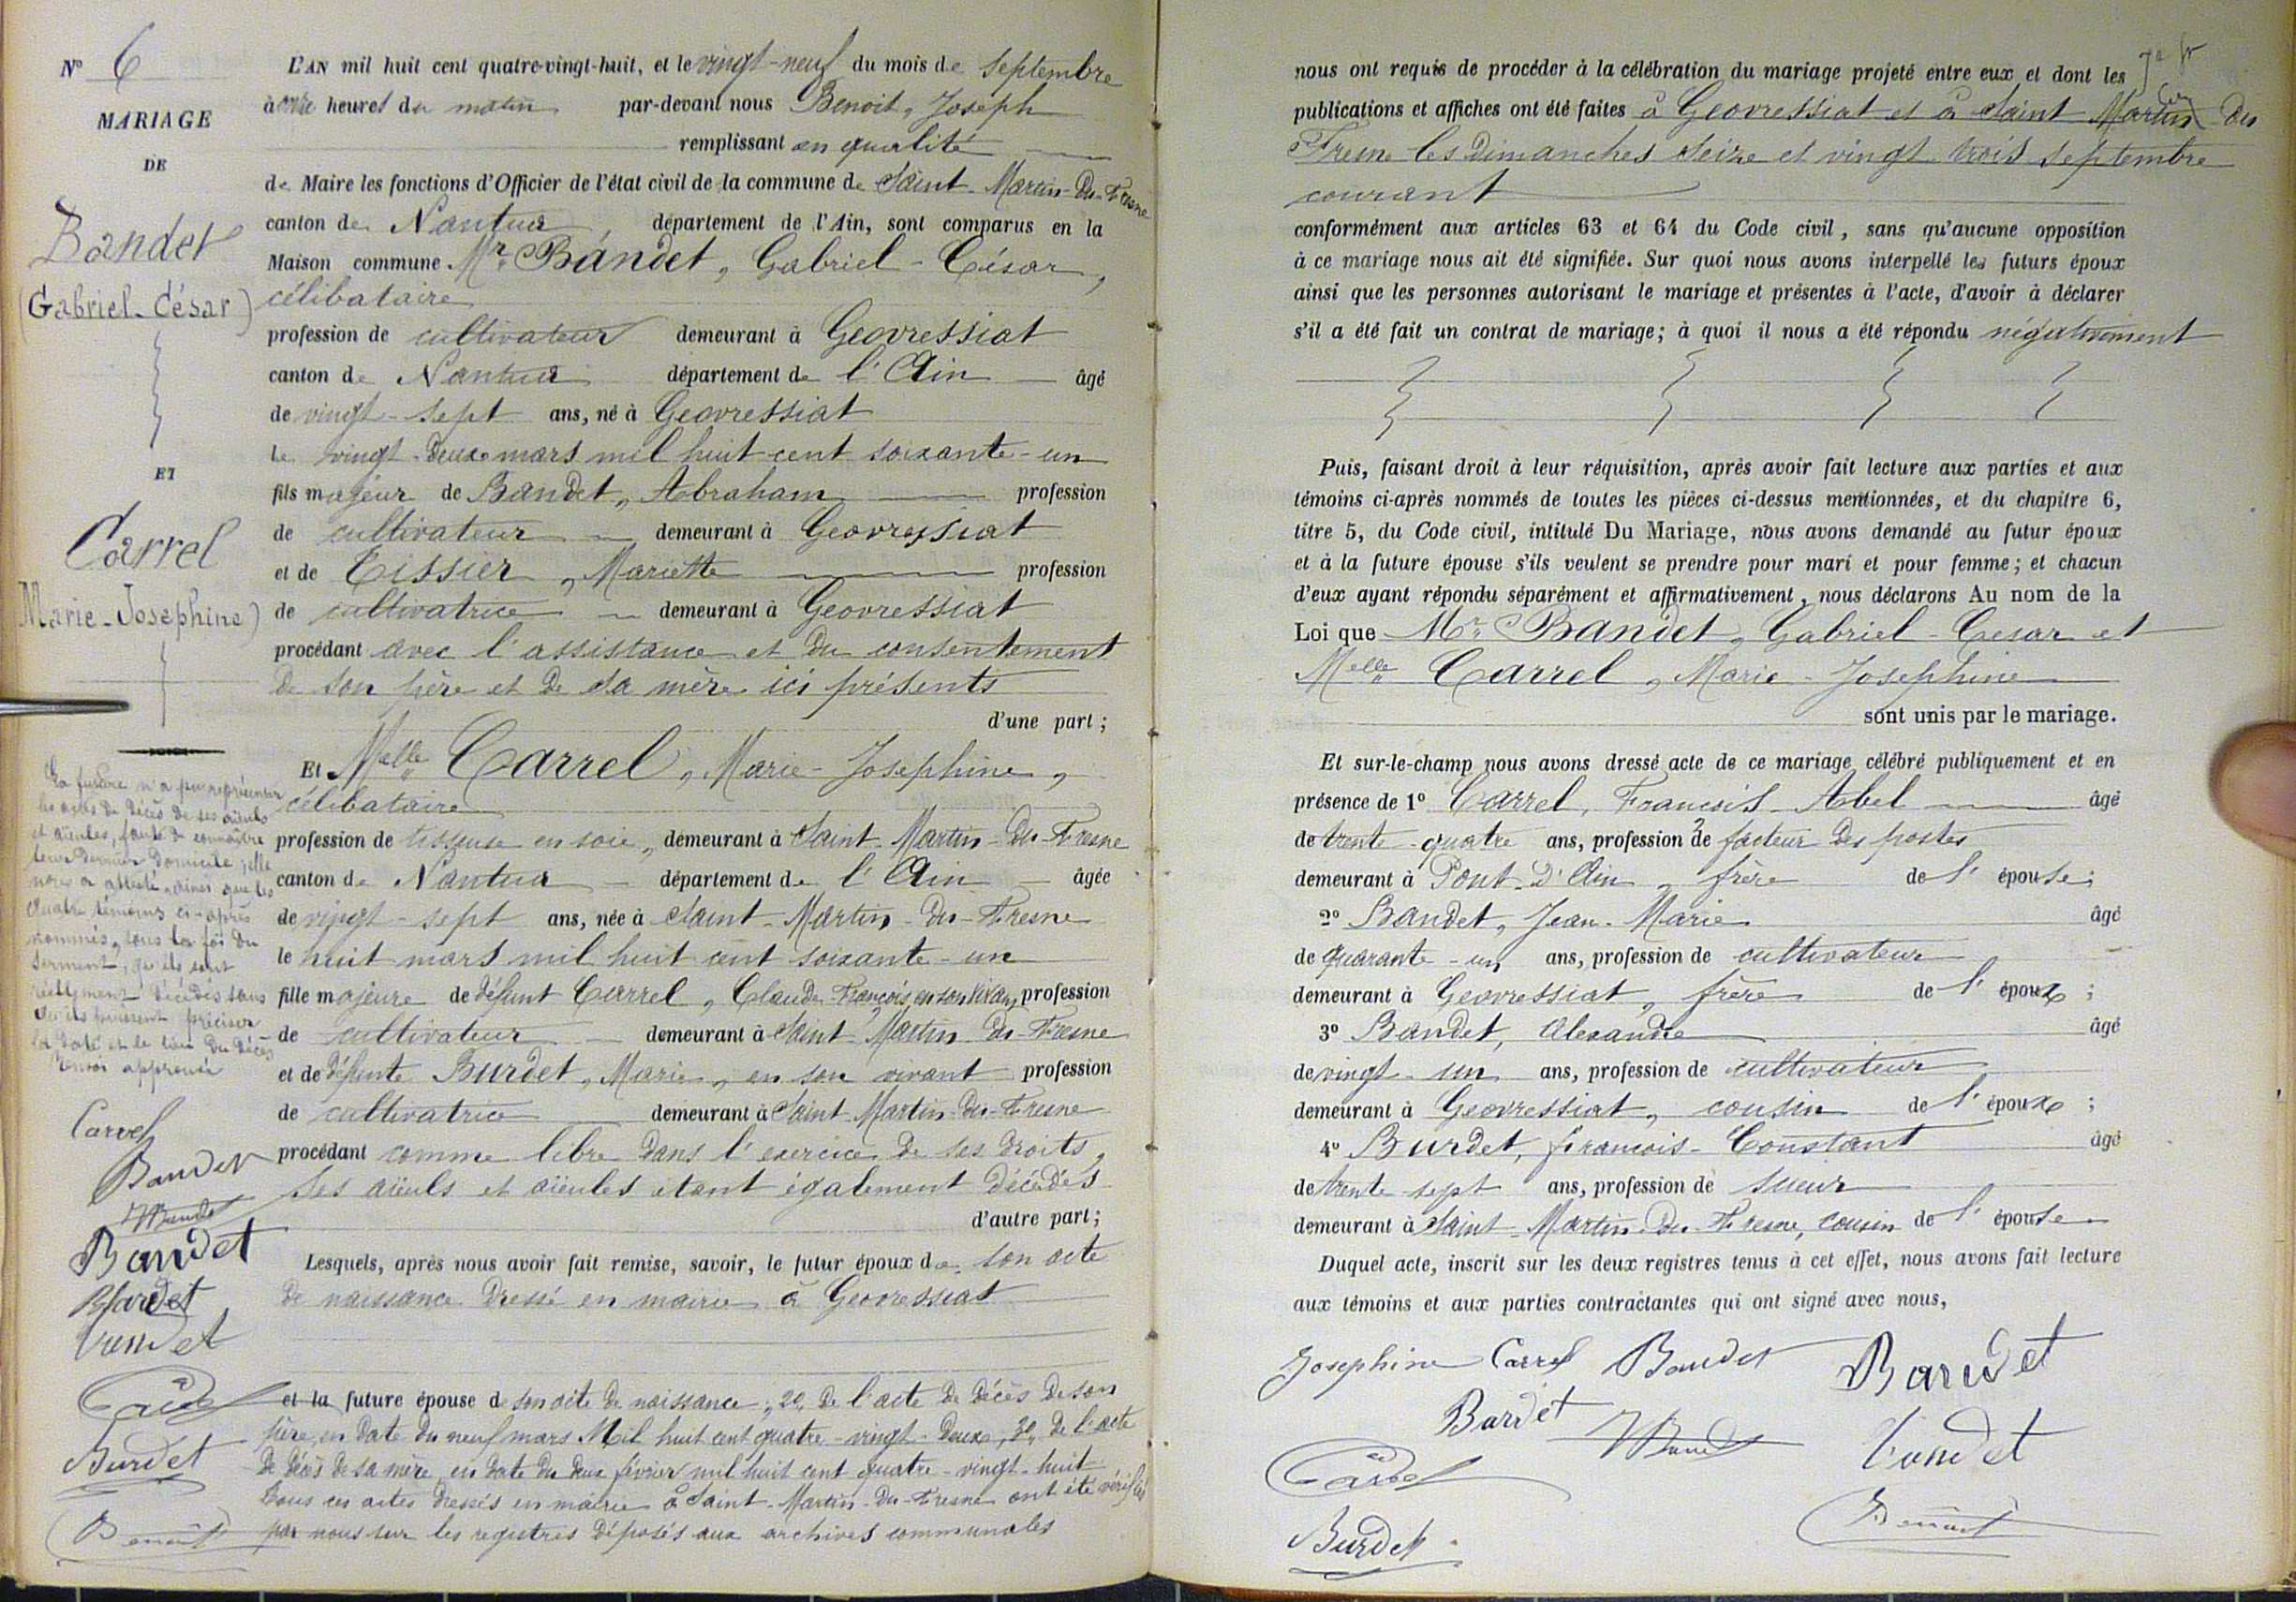 N° 6
MARIAGE
DE
Bandet
(Gabriel-César)
ET
Carrel
Marie-Josephine)
La future n'a pu représenter
les actes de décès de ses aïeuls
et aïeules, faute de connaître
leur dernier domicile ; elle
nous a attesté, ainsi que les
quatre témoins ci-après
nommés, sous la foi du
serment, qu'ils sont
réellement décédés sans
qu'ils puissent préciser
la date et le lieu du décès
Renvoi approuvé
Carrel
Bandet
Bandet
Bandet
Vandet
Burdet
Benoit
L'AN mil huit cent quatre-vingt-huit, et le vingt-neuf du mois de septembre
à onze heures du matin par-devant nous Benoit, Joseph
remplissant en qualité
de Maire les fonctions d'Officier de l'état civil de la commune de Saint-Martin-du-Fresne
canton de Nantua département de l'Ain, sont comparus en la
Maison commune Mr. Bandet, Gabriel-César,
célibataire
profession de cultivateur demeurant à Geovressiat
canton de Nantua département de l'Ain âgé
de vingt-sept ans, né à Geovressiat
le vingt-deux mars mil huit cent soixante-un
fils majeur de Bandet, Abraham profession
de cultivateur demeurant à Geovressiat
et de Tissier, Mariette profession
de cultivatrice demeurant à Geovressiat
procédant avec l'assistance et du consentement
de son père et de sa mère ici présents
d'une part ;
Et Melle Carrel, Marie-Josephine,
célibataire
profession de tisseuse en soie, demeurant à Saint-Martin-du-Fresne
canton de Nantua département de l'Ain âgée
de vingt-sept ans, née à Saint-Martin-du-Fresne
le huit mars mil huit cent soixante-un
fille majeure de défunt Carrel, Claude François en son vivant profession
de cultivateur demeurant à Saint-Martin-du-Fresne
et de défunte Burdet, Marie, en son vivant profession
de cultivatrice demeurant à Saint-Martin-du-Fresne
procédant comme libre dans l'exercice de ses droits,
ses aïeuls et aïeules étant également décédés
d'autre part ;
Lesquels, après nous avoir fait remise, savoir, le futur époux de son acte
de naissance dressé en mairie à Geovressiat
et la future épouse d son acte de naissance, 2o, de l'acte de décès de son
père, en date du neuf mars Mil huit cent quatre-vingt-deux, 3o, de l'acte
de décès de sa mère, en date du deux février mil huit cent quatre-vingt-huit
tous ces actes dressés en mairie à Saint-Martin-du-Fresne ont été vérifiés
par nous sur les registres déposés aux archives communales
nous ont requis de procéder à la célébration du mariage projeté entre eux et dont les
publications et affiches ont été faites à Geovressiat et à Saint Martin du
Fresne les dimanches seize et vingt trois septembre
courant
conformément aux articles 63 et 64 du Code civil, sans qu'aucune opposition
à ce mariage nous ait été signifiée. Sur quoi nous avons interpellé les futurs époux
ainsi que les personnes autorisant le mariage et présentes à l'acte, d'avoir à déclarer
s'il a été fait un contrat de mariage ; à quoi il nous a été répondu négativement
Puis, faisant droit à leur réquisition, après avoir fait lecture aux parties et aux
témoins ci-après nommés de toutes les pièces ci-dessus mentionnées, et du chapitre 6,
titre 5, du Code civil, intitulé Du Mariage, nous avons demandé au futur époux
et à la future épouse s'ils veulent se prendre pour mari et pour femme ; et chacun
d'eux ayant répondu séparément et affirmativement, nous déclarons Au nom de la
Loi que Mr. Bandet, Gabriel-Cesar et
Melle Carrel, Marie-Josephine
sont unis par le mariage.
Et sur-le-champ nous avons dressé acte de ce mariage célébré publiquement et en
présence de 1° Carrel, Francois-Abel âgé
de trente-quatre ans, profession de facteur des postes
demeurant à Pont-d'Ain, frère de l'épouse ;
2° Bandet, Jean-Marie âgé
de quarante-un ans, profession de cultivateur
demeurant à Geovressiat, frère de l'époux ;
3° Bandet, Alexandre âgé
de vingt-un ans, profession de cultivateur
demeurant à Geovressiat, cousin de l'époux ;
4° Burdet, francois-Constant âgé
de trente sept ans, profession de sueur
demeurant à Saint-Martin-du-Fresne, cousin de l'épouse
Duquel acte, inscrit sur les deux registres tenus à cet effet, nous avons fait lecture
aux témoins et aux parties contractantes qui ont signé avec nous,
Josephine Carrel Bandet Bandet
Bandet Bandet Vandet
Carrel
Benoit
Burdet